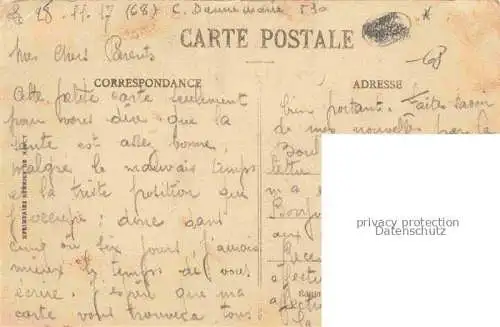 28.11.17 (68) C. Dannemarie 530
Mes chers Parents
CARTE POSTALE
CORRESPONDANCE
ADRESSE
Cette petite carte seulement
pour vous dire que la
santé est assez bonne,
malgré le mauvais temps
et la triste position que
j'occupe; donc dans
cinq ou six jours j'aurais
mieux le temps de vous
écrire. J'espère que ma
carte vous trouvera tous
bien portant. Faites savoir
de mes nouvelles par la
lettre
m'a
aux
privacy protection
Datenschutz